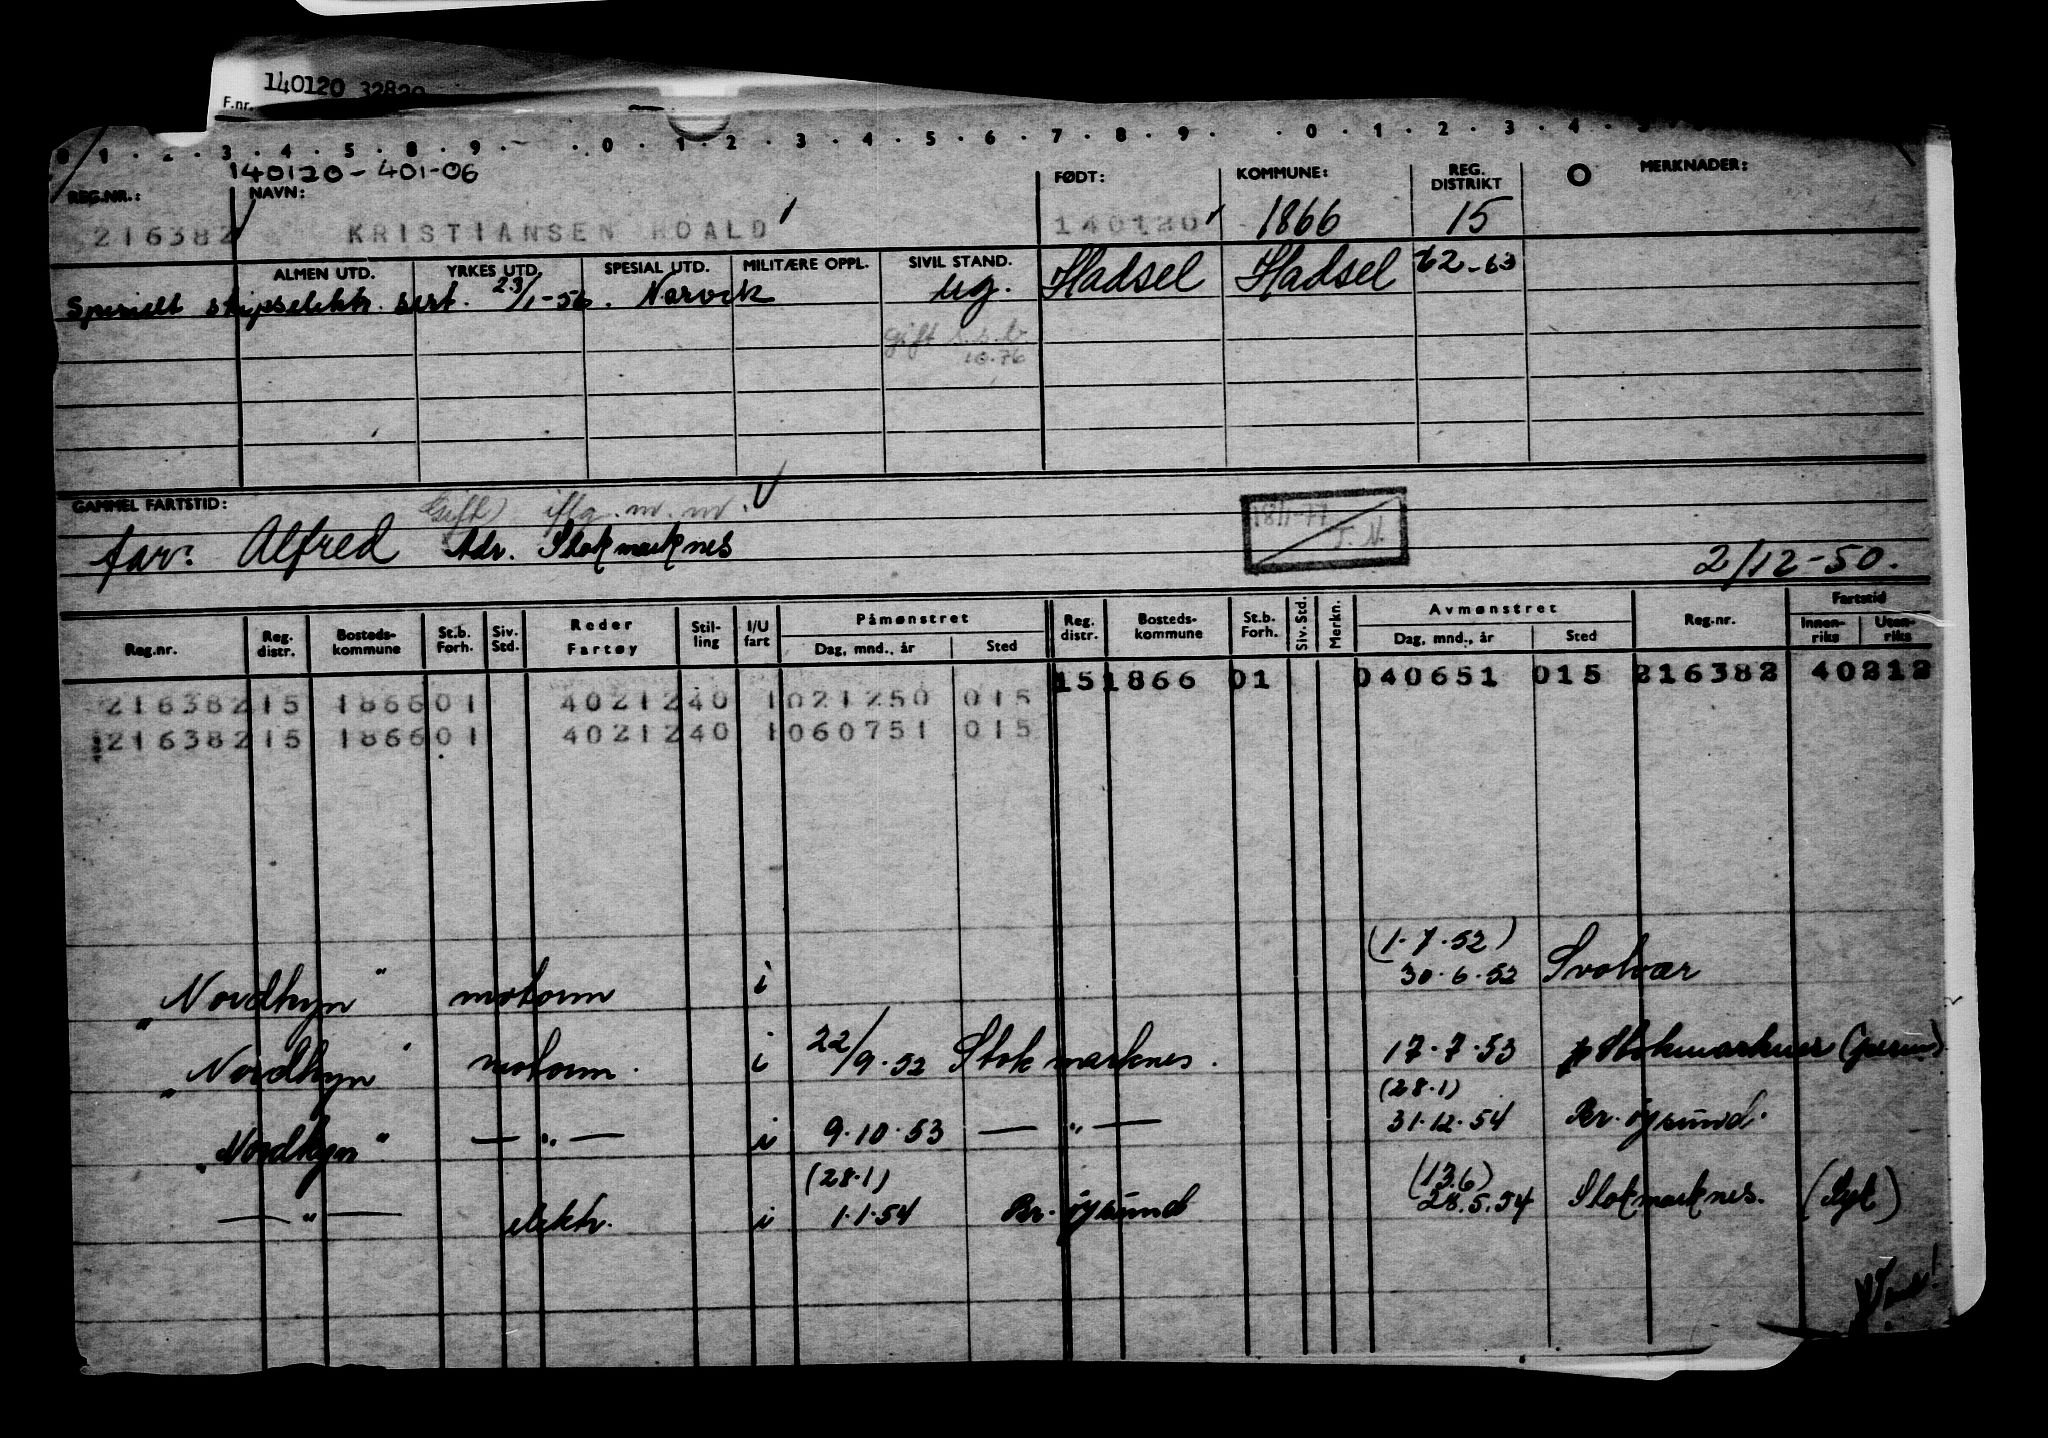 140120 32829
F.nr.
0 1 . 2 . 3 . 4 . 5 . 8 . 9 . . 0 . 1 . 2 . 3 . 4 . 5 . 6 . 7 . 8 . 9 . . 0 . 1 . 2 . 3 . 4
140120-401-06
REG.NR.: NAVN: FØDT: KOMMUNE: REG. DISTRIKT MERKNADER:
216382 KRISTIANSEN ROALD 140120 1866 15
ALMEN UTD. YRKES UTD. SPESIAL UTD. MILITÆRE OPPL. SIVIL STAND. Hadsel Hadsel 62-63
Spesielt skipselektr. sert. 23/1-56. Narvik ug.
gift
10.76
GAMMEL FARTSTID: Gift iflg. m.m.
18/1-77
T.N.
far: Alfred Adr. Stokmarknes 2/12-50.
Reg.nr. Reg. distr. Bosteds-kommune St.b. Forh. Siv. Std. Reder Fartøy Stil-ling I/U fart Påmønstret Dag, mnd., år Sted Reg. distr. Bosteds-kommune St.b. Forh. Siv. Std. Merkn. Avmønstret Dag, mnd., år Sted Reg.nr. Fartstid Innen-riks Uten-riks
15 1866 01 040651 015 216382 40212
216382 15 1866 01 40212 40 1 021250 015
216382 15 1866 01 40212 40 1 060751 015
(1.7.52)
"Nordkyn" motorm i 30.6.52 Svolvær
"Nordkyn" motorm. i 22/9.52 Stokmarknes. 17.7.53 Stokmarknes
(28.1)
"Nordkyn" — " — i 9.10.53 — " — 31.12.54 Br.øysund.
(28.1) (13.6)
— " — elektr. i 1.1.54 Br.øysund 28.5.54 Stokmarknes. (Syk)